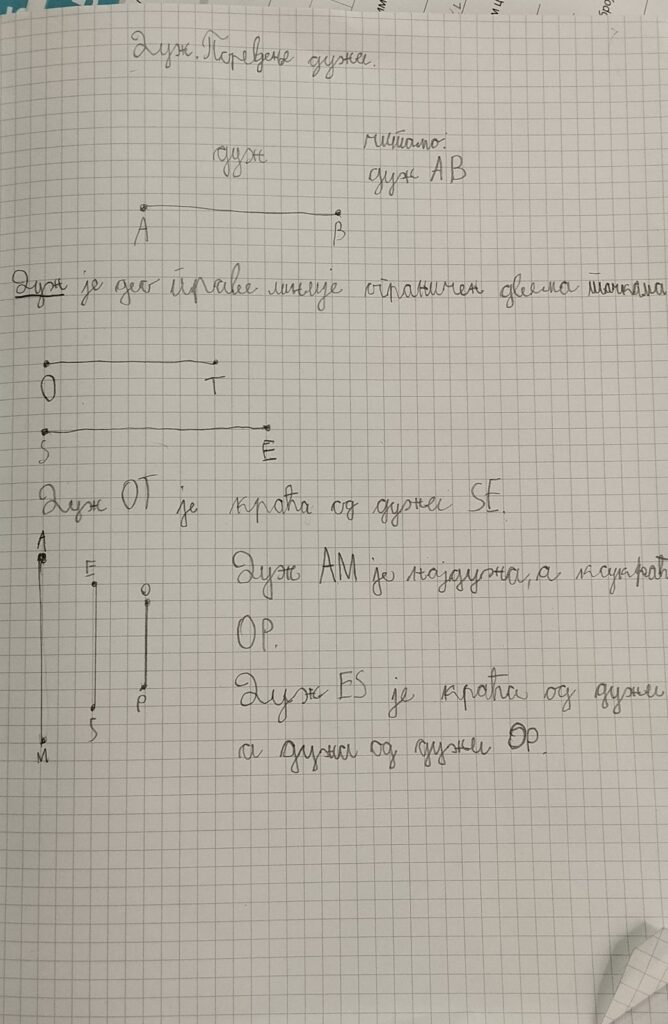 Дуж. Поређење дужи.
дуж
читамо:
дуж AB
A B
Дуж је део праве линије ограничен двема тачкама
O T
S E
Дуж OT је краћа од дужи SE.
A
E
O
Дуж AM је најдужа, а најкраћ
OP.
P
Дуж ES је краћа од дужи
S
M
а дужа од дужи OP.